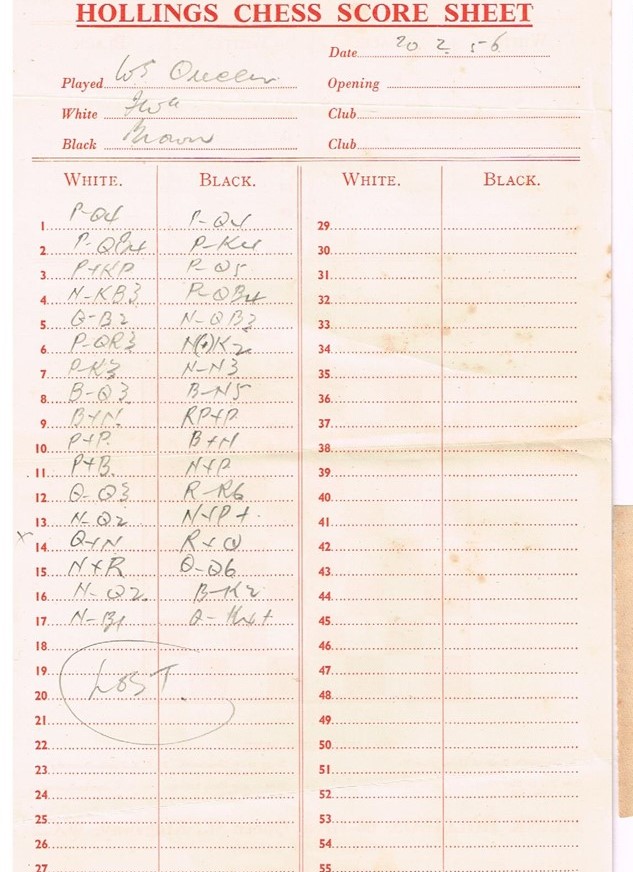 HOLLINGS CHESS SCORE SHEET
Date 20 2. 56
Played Queen Opening
White Club
Black Brown Club
WHITE. BLACK. WHITE. BLACK.
1 P-Q4 P-Q4 29
2 P-QB4 P-K4 30
3 P+KP P-Q5 31
4 N-KB3 P-QB4 32
5 Q-B2 N-QB3 33
6 P-QR3 N(+)K2 34
7 P-K3 N-N3 35
8 B-Q3 B-N5 36
9 B+N. RP+P. 37
10 P+P. B+N 38
11 P+B. N+P 39
12 Q-Q3 R-R6 40
13 N-Q2 N+P+. 41
x 14 Q+N R+Q 42
15 N+R Q-Q6 43
16 N-Q2. B-K2 44
17 N-B1 45
18 46
19 LOST. 47
20 48
21 49
22 50
23 51
24 52
25 53
26 54
27 55